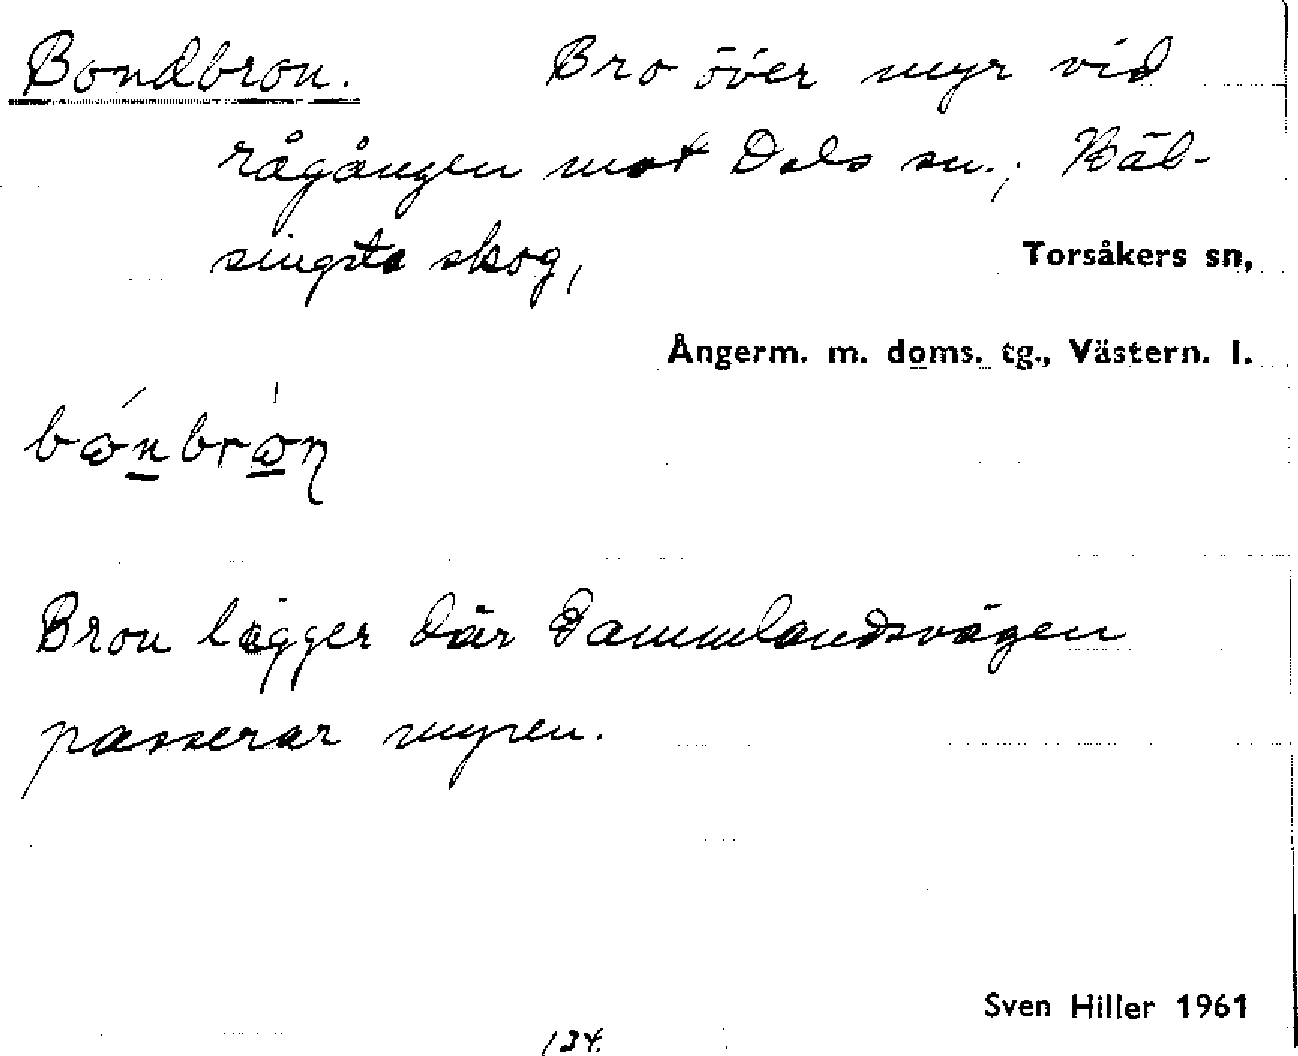 Bondbron. Bro över myr vid
rågången mot Dals sn.; Häl-
singsta skog, Torsåkers sn,
Ångerm. m. doms. tg., Västern. l.
Bron ligger där Gammlandsvägen
passerar myren.
Sven Hiller 1961
134.